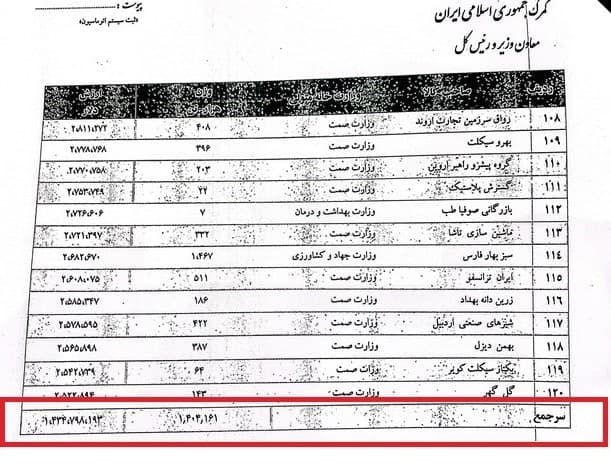 پیوست :
«ثبت سیستم اتوماسیون»
گمرک جمهوری اسلامی ایران
معاون وزیر و رئیس کل
ردیف صاحب کالا وزارت خانه وزن ارزش
۱۰۸ رواق سرزمین تجارت اروند وزارت صمت ۴۰۸ ۲،۸۱۱،۲۷۲
۱۰۹ بهرو سیکلت وزارت صمت ۳۹۶ ۲،۷۷۸،۷۶۸
۱۱۰ گروه پیشرو راهبر وزارت صمت ۲۰۳ ۲،۷۷۰،۷۵۸
۱۱۱ گسترش پلاستیک وزارت صمت ۴۲ ۲،۷۵۳،۷۴۹
۱۱۲ بازرگانی صوفیا طب وزارت بهداشت و درمان ۷ ۲،۷۲۶،۶۰۶
۱۱۳ ماشین سازی تاشا وزارت صمت ۳۳۲ ۲،۷۲۱،۳۹۷
۱۱۴ سبز بهار فارس وزارت جهاد و کشاورزی ۱،۴۶۷ ۲،۶۸۲،۶۷۰
۱۱۵ ایران ترانسفو وزارت صمت ۵۱۱ ۲،۶۰۸،۰۷۵
۱۱۶ زرین دانه بهداد وزارت صمت ۱۸۶ ۲،۵۸۵،۳۴۷
۱۱۷ شیرهای صنعتی اردبیل وزارت صمت ۴۲۲ ۲،۵۷۸،۵۹۵
۱۱۸ بهمن دیزل وزارت صمت ۳۸۷ ۲،۵۶۵،۸۹۸
۱۱۹ یکتاز سیکلت کویر وزارت صمت ۶۴ ۲،۵۴۲،۷۳۹
۱۲۰ گل گهر وزارت صمت ۱۴۳ ۲،۵۲۲،۸۹۴
سرجمع ۱،۴۰۴،۱۶۱ ۱،۴۳۴،۷۹۸،۱۹۳